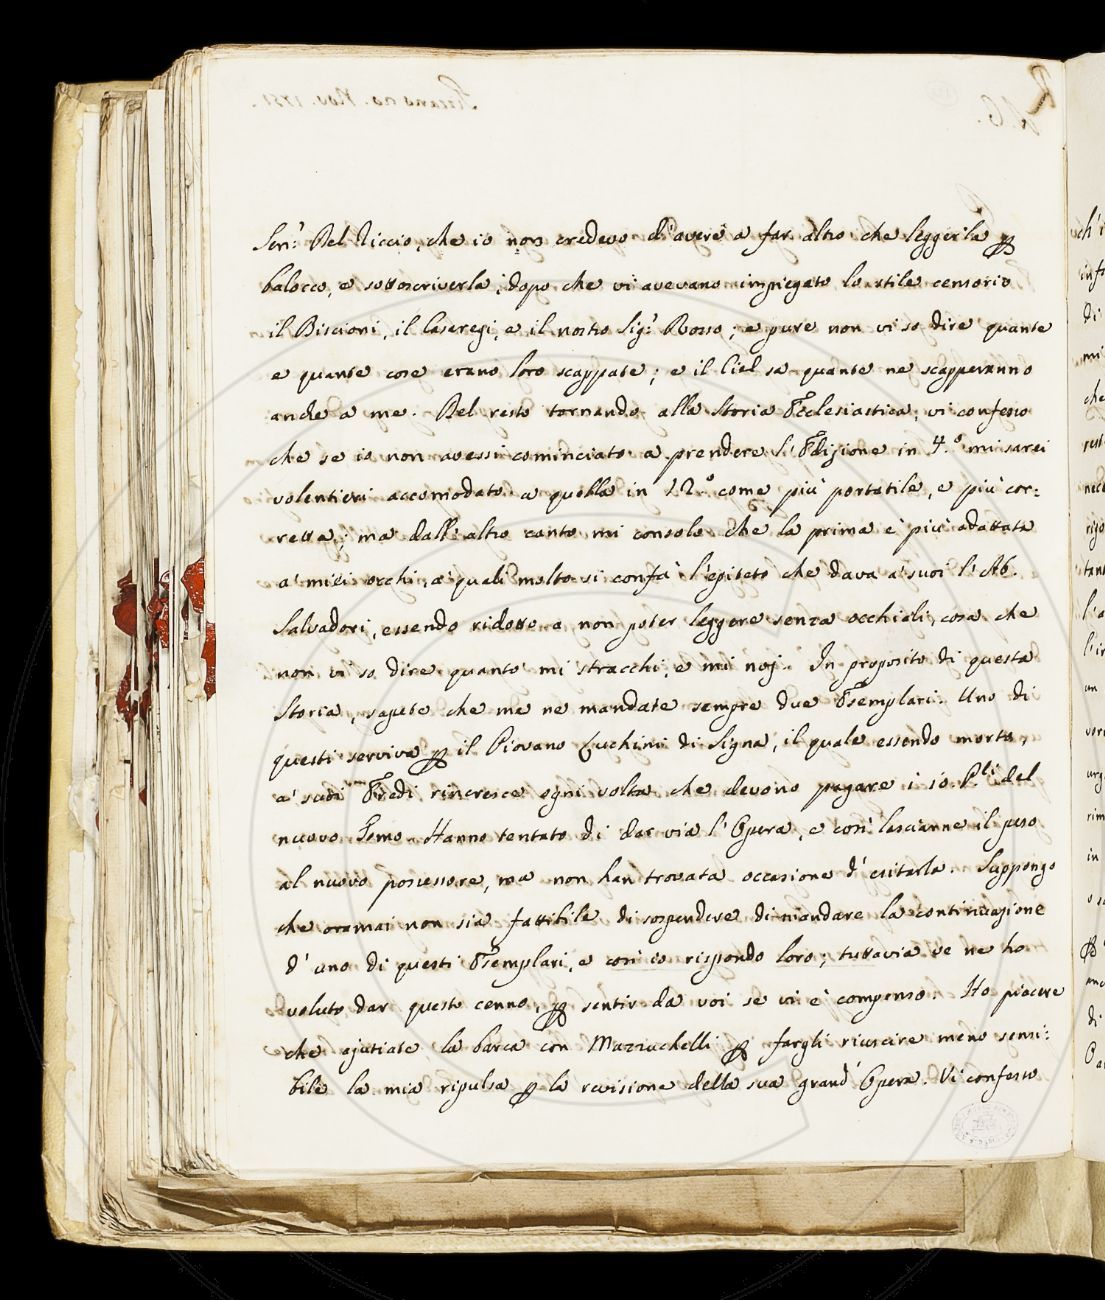 Sen.r Del Riccio, che io non credevo d'avere a far altro che leggerla p
balocco, e sottoscriverla; dopo che vi avevano impiegato lo stile censorio
il Biscioni, il Casaregi, e il nostro Sig.r Rosso; e pure non vi so dire quante
e quante cose erano loro scappate; e il Ciel sa quante ne scapperanno
anche a me. Del resto tornando alla Storia Ecclesiastica, vi confesso
che se io non avessi cominciato a prendere l'Edizione in 4.o mi sarei
volentieri accomodato a quella in 12.o come più portatile, e più cor:
retta; ma dall'altro canto mi consolo che la prima è più adattata
a' miei occhi, a' quali molto si confà l'epiteto che dava a' suoi l'Ab.
Salvadori, essendo ridotto a non poter leggere senza occhiali, cosa che
non vi so dire quanto mi stracchi, e mi noj. In proposito di questa
Storia, sapete che me ne mandate sempre due Esemplari. Uno di
questi serviva p il Piovano Luchini di Signa, il quale essendo morto,
a' suoi Eredi rincresce ogni volta che devono pagare i 10. P.li del
nuovo Tomo. Hanno tentato di dar via l'Opera, e così lasciarne il peso
al nuovo possessore, ma non han trovata occasione d'esitarla. Suppongo
che oramai non sia fattibile di sospendere di mandare la continuazione
d'uno di questi Esemplari, e così io rispondo loro; tuttavia ve ne ho
voluto dar questo cenno, p sentir da voi se vi è compenso. Ho piacere
che ajutiate la barca con Mazzuchelli p fargli riuscire meno sensi:
bile la mia ripulsa p la revisione della sua grand'Opera. Vi confesso